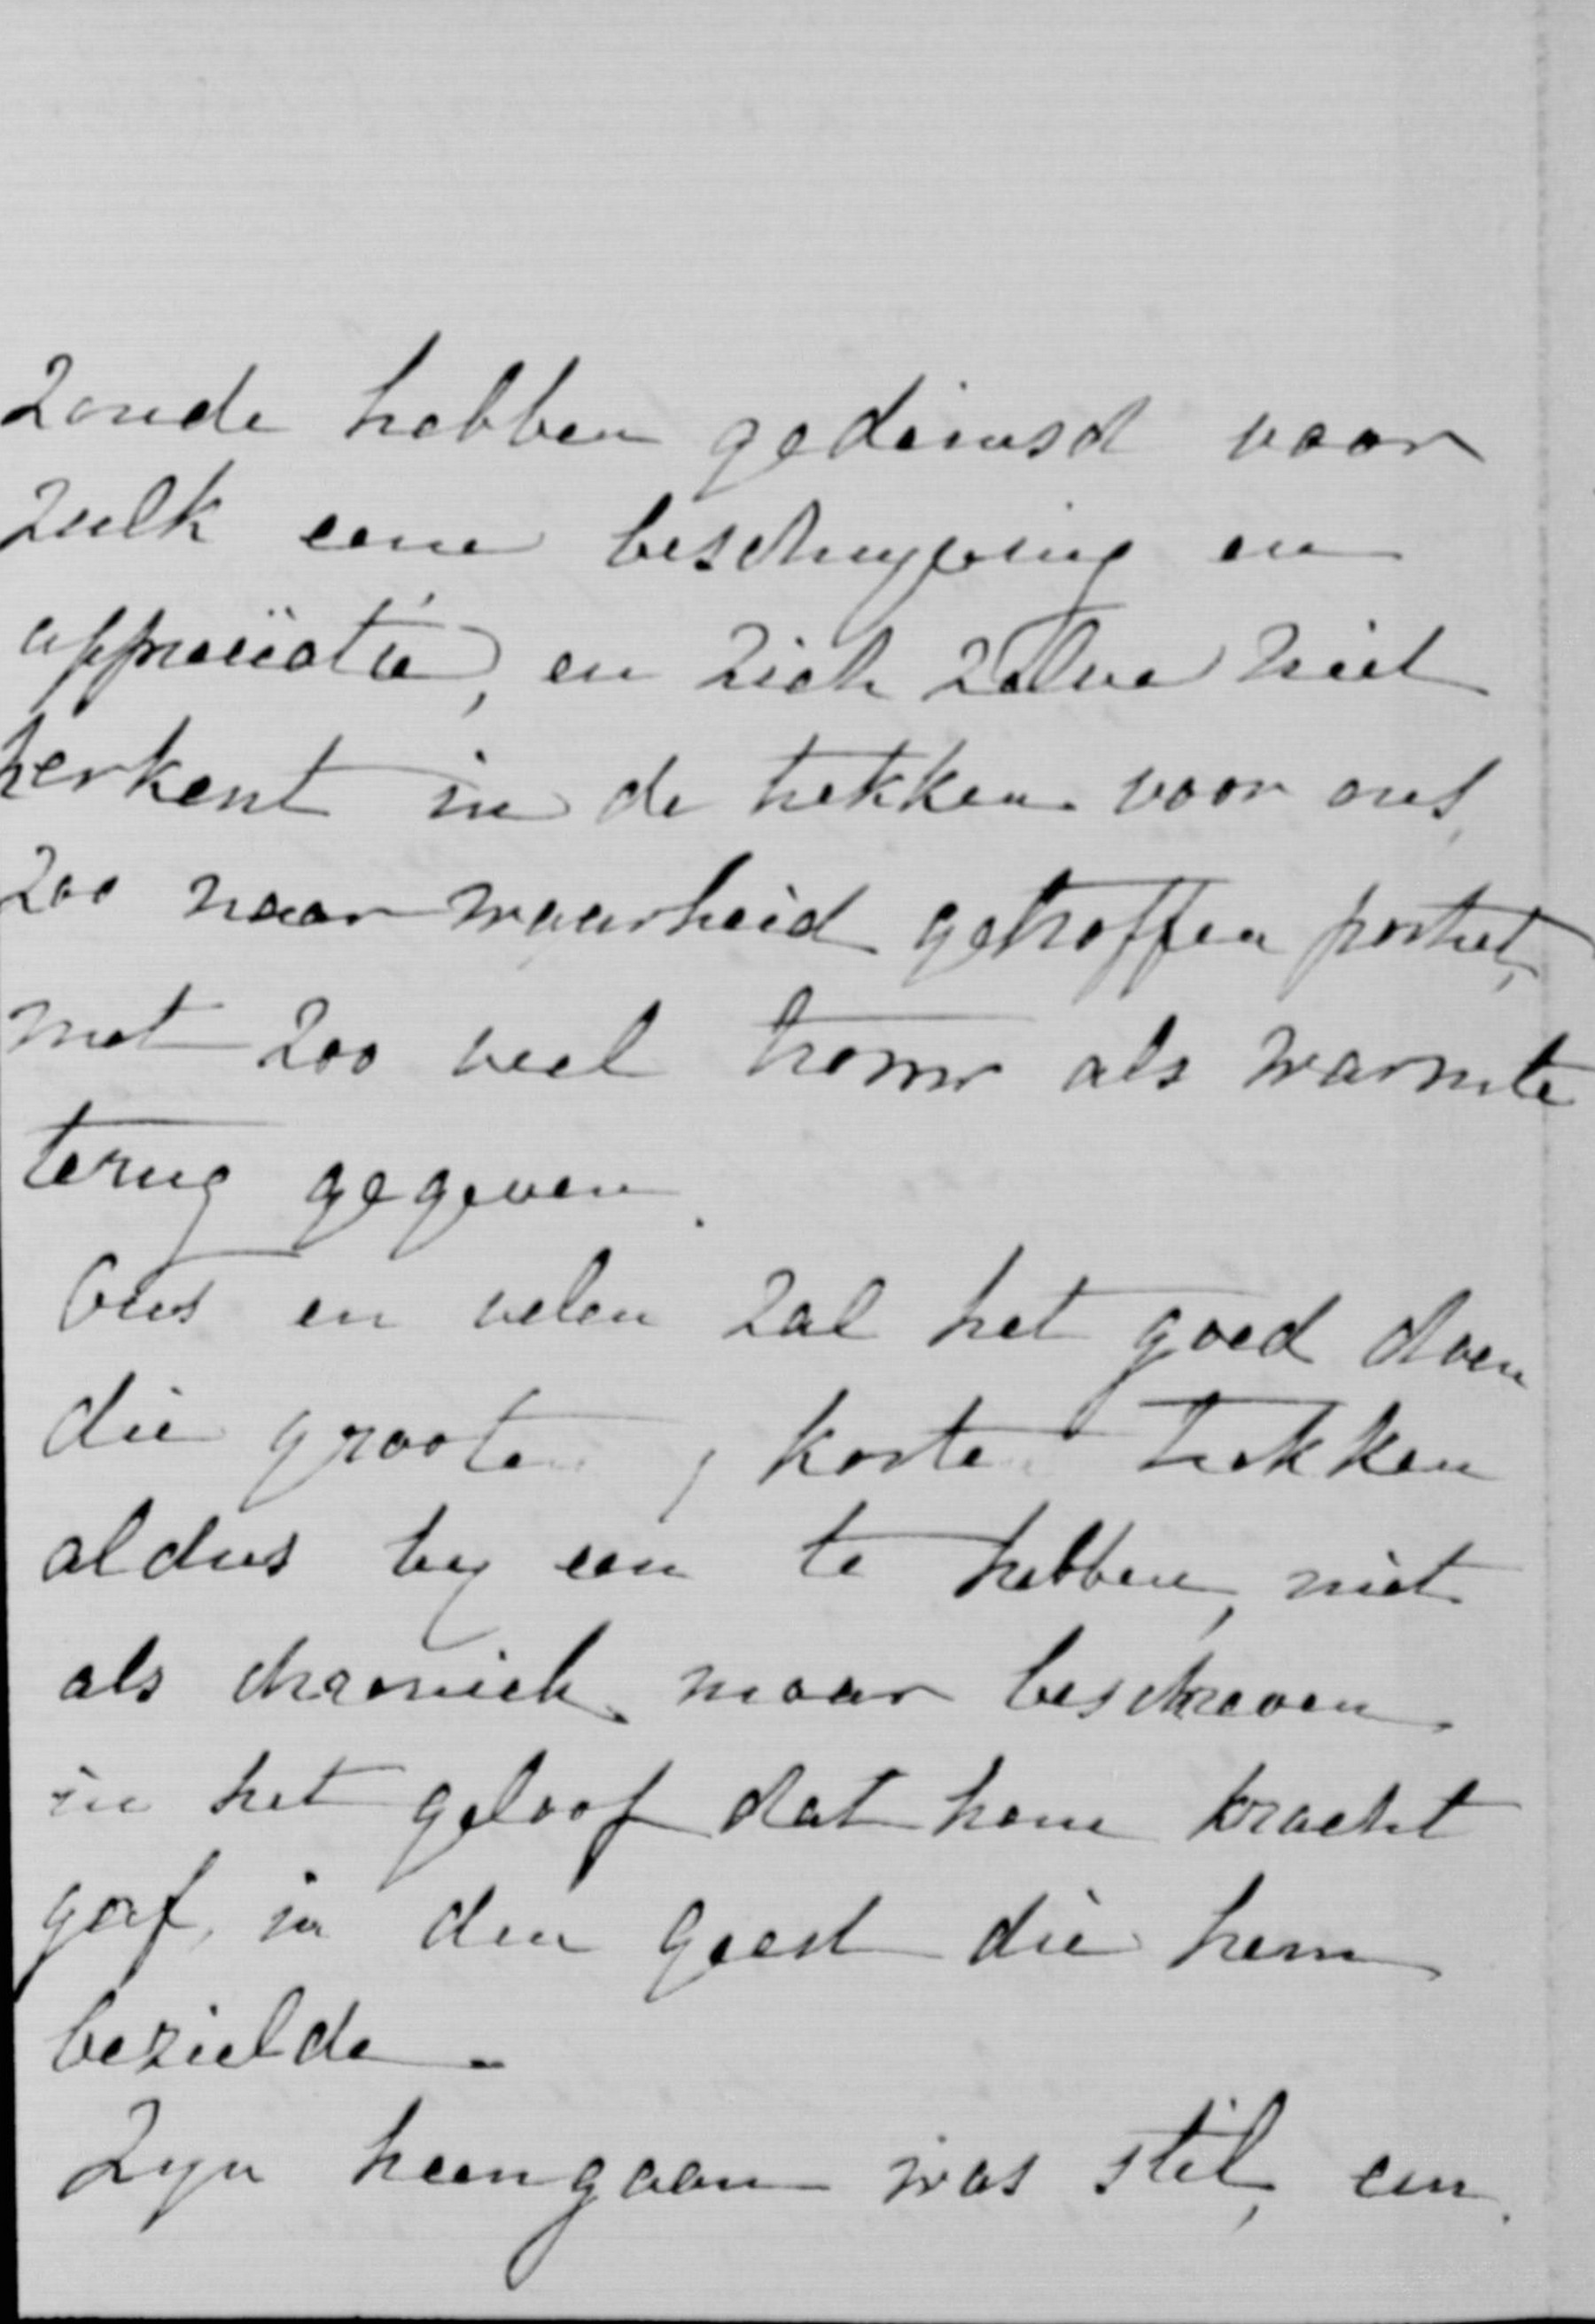 zoude hebben gedeinsd voor
zulk eene beschryving en
appreciatie, en zich zelve niet
herkent in de trekken voor ons
zoo naar waarheid getroffen portret,
met zoo veel trouw als warmte
terug gegeven.
Ons en velen zal het goed doen
die groote, korte trekken
aldus by een te hebben, niet
als chroniek maar beschreven
in het geloof dat hem kracht
gaf, in den geest die hem
bezielde.
Zyn heengaan was stil, een